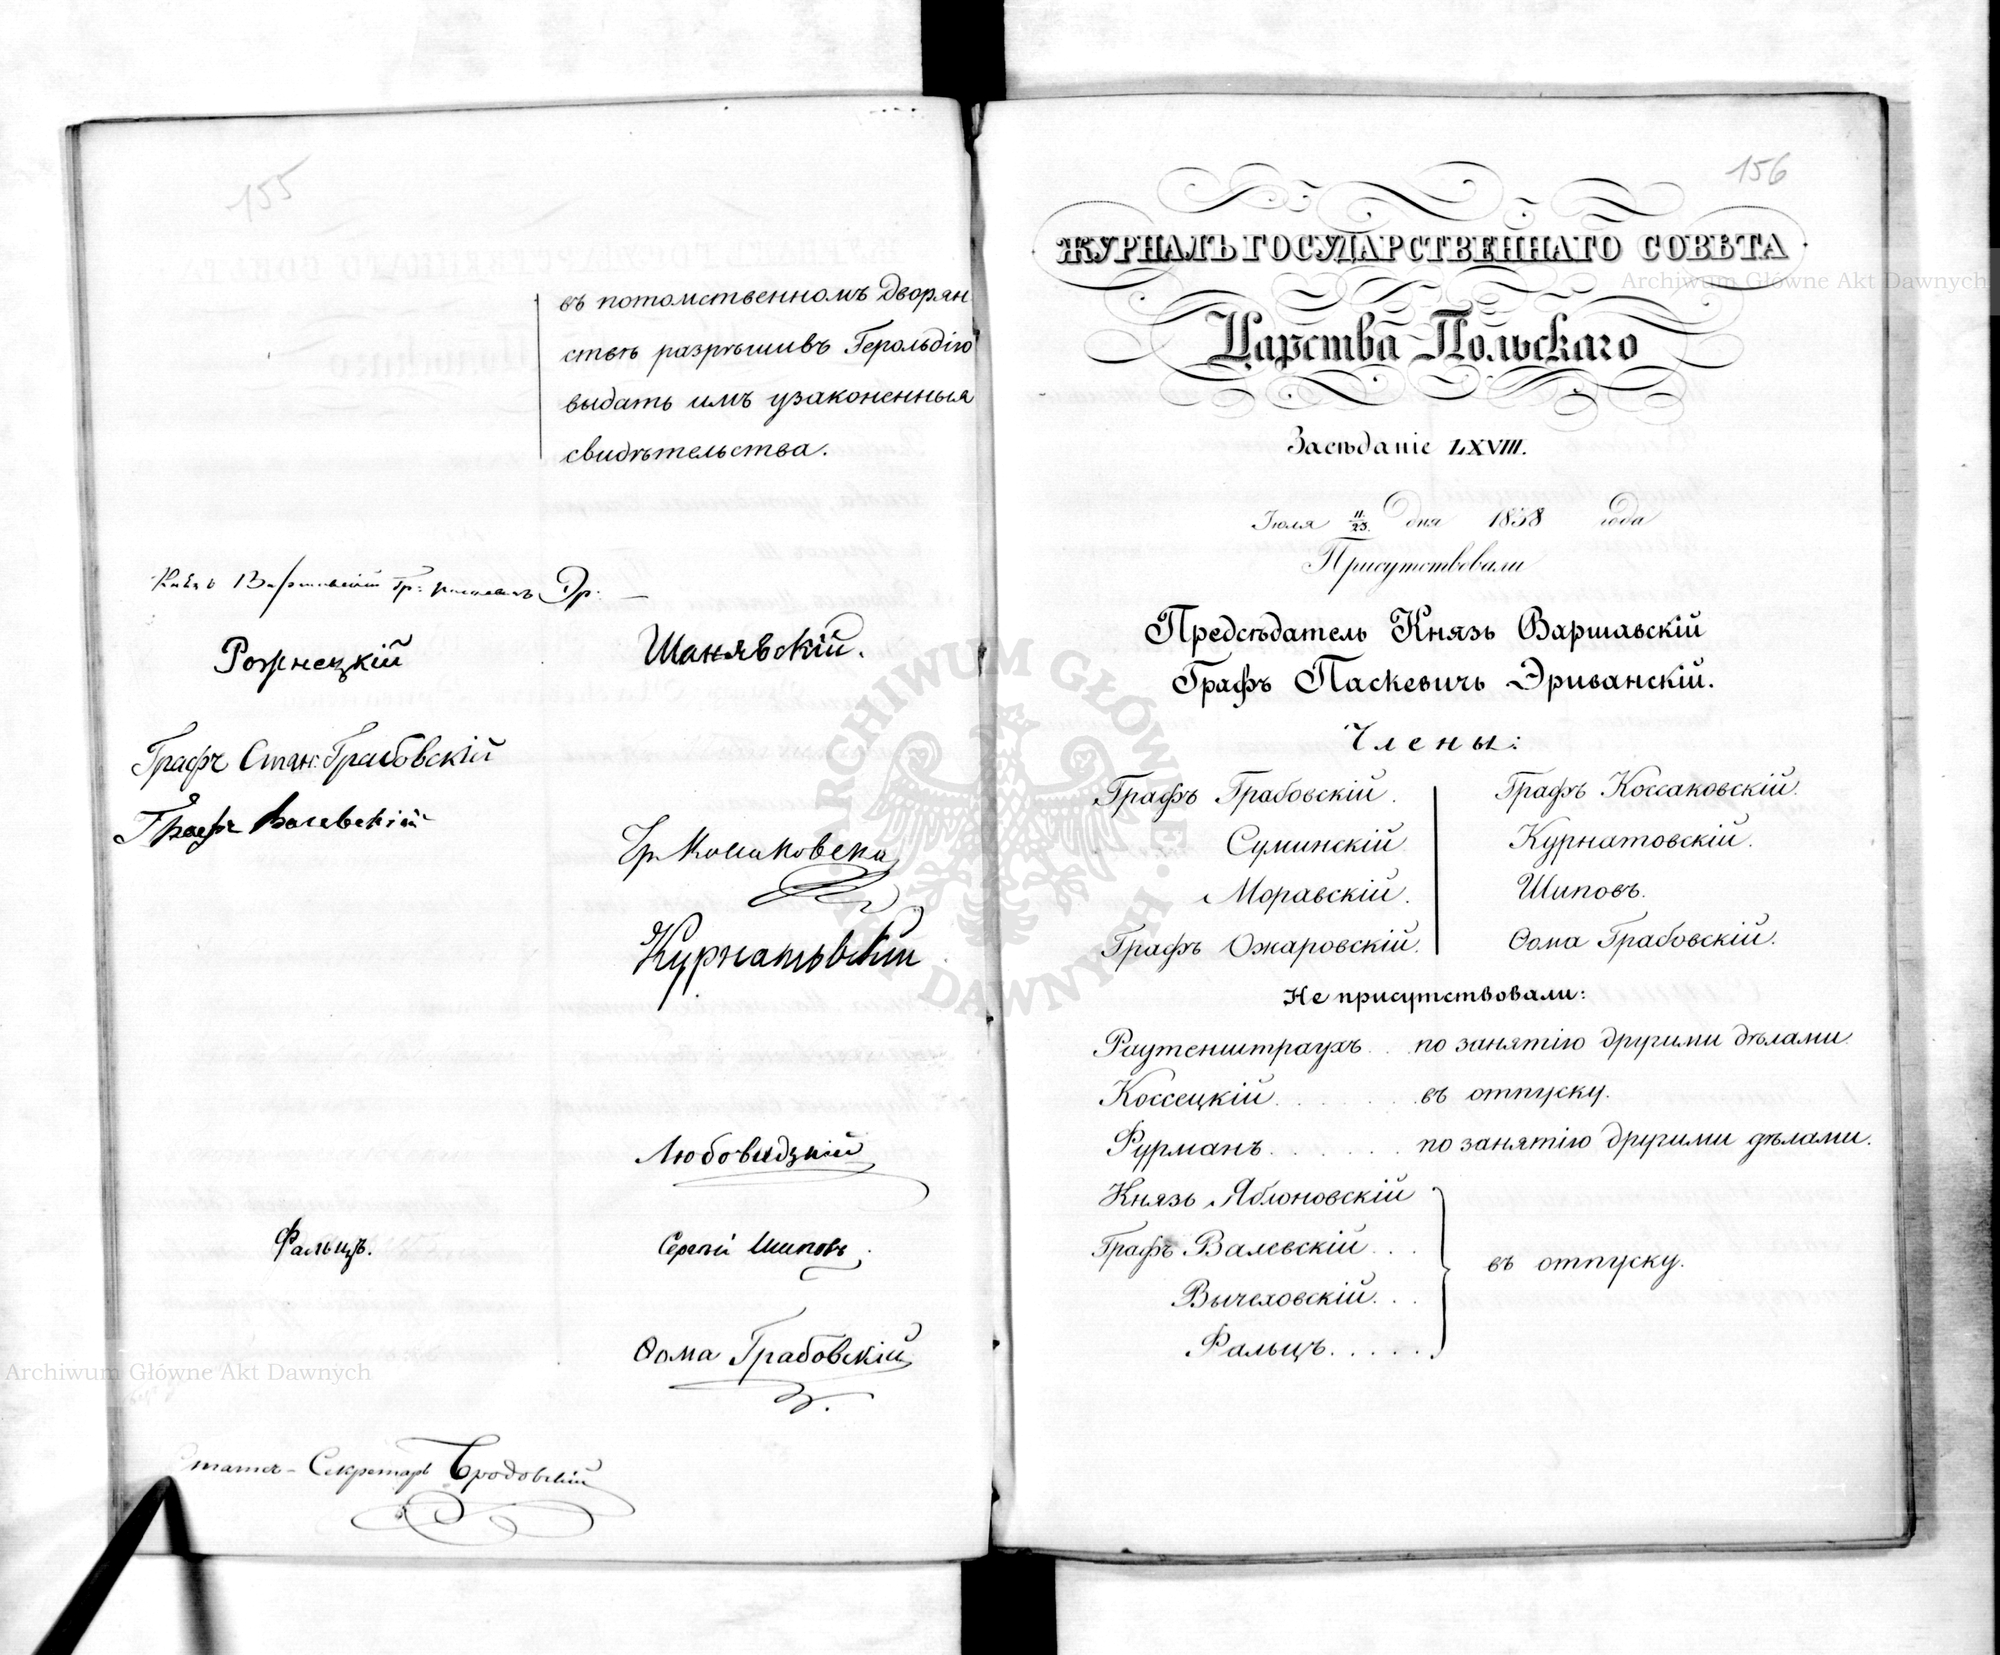 155
въ потомственномъ дворян
ствѣ разрѣшивъ Герольдію
выдать имъ узаконенныя
свидѣтельства.
Князь Варшавскій Гр: Паскевичъ Эр:
Рожнецкій
Шанявскій.
Графъ Стан: Грабовскій
Графъ Валевскій
Гр Коссаковски
Курнатовскій
Любовидзкій
Фальцъ.
Сергѣй Шиповъ
Ѳома Грабовскій
Статсъ-Секретарь Бродовскій
156
ЖУРНАЛЪ ГОСУДАРСТВЕННАГО СОВѢТА
Царства Польскаго
Засѣданіе LXVIII.
Іюля 11/23. дня 1838 года
Присутствовали
Предсѣдатель Князь Варшавскій
Графъ Паскевичъ Эриванскій.
Члены:
Графъ Грабовскій.
Суминскій
Моравскій.
Графъ Ожаровскій.
Графъ Коссаковскій.
Курнатовскій.
Шиповъ.
Ѳома Грабовскій.
Не присутствовали:
Раутенштраухъ . . по занятію другими дѣлами.
Коссецкій . . . . . . въ отпуску.
Фурманъ . . . . . . по занятію другими дѣлами.
Князь Яблоновскій
Графъ Валевскій . . .
Вычеховскій . . .
Фальцъ . . . . .
въ отпуску.
Archiwum Główne Akt Dawnych
Archiwum Główne Akt Dawnych
ARCHIWUM GŁÓWNE AKT DAWNYCH